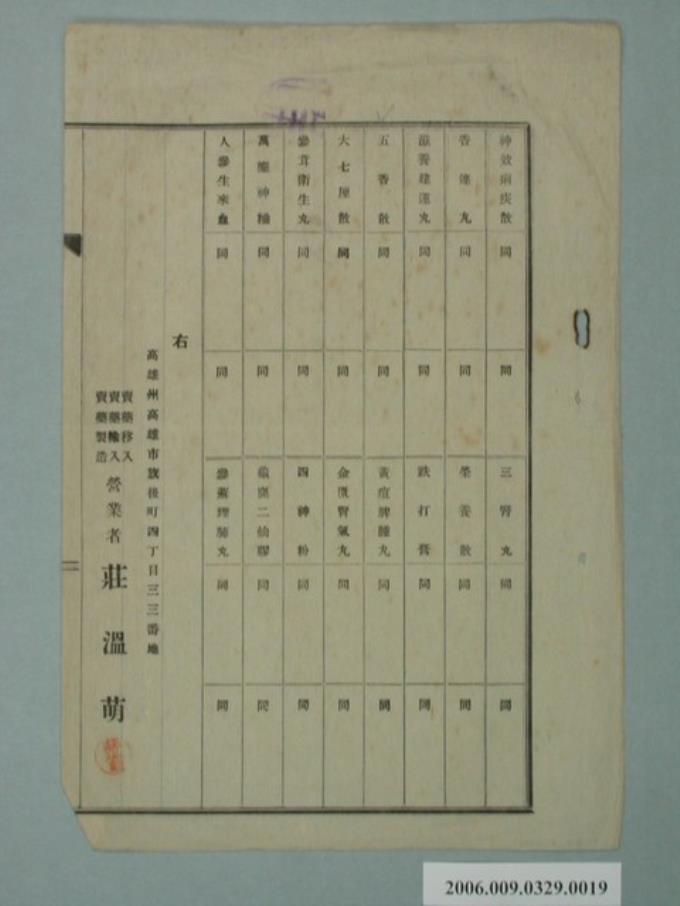 神效痢疾散 同 同 三腎丸 同 同
香連丸 同 同 榮養散 同 同
滋養建蓮丸 同 同 跌打膏 同 同
五香散 同 同 黃疸脾腫丸 同 同
大七厘散 同 同 金匱腎氣丸 同 同
參茸衛生丸 同 同 四神粉 同 同
萬應神柚 同 同 龜鹿二仙膠 同 同
人參生來血 同 同 參蘇理肺丸 同 同
右
高雄州高雄市旗後町四丁目三三番地
賣藥移入
賣藥輸入
賣藥製造
營業者 莊溫萌
二
2006.009.0329.0019